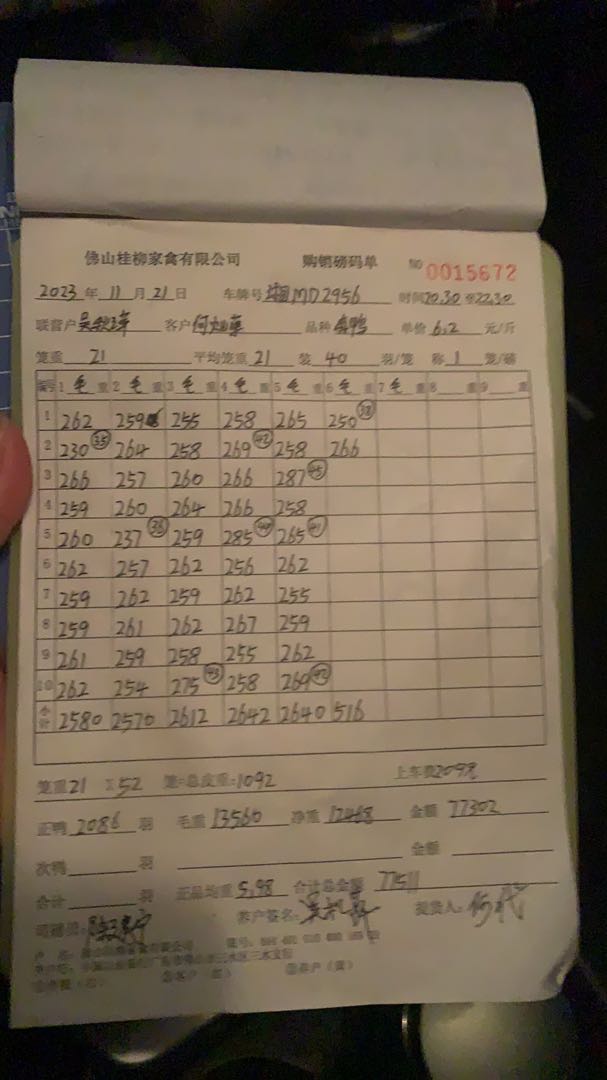 佛山桂柳家禽有限公司 购销磅码单 NO 0015672
2023年11月21日 车牌号 湘MD2956 时间20.30至22.30
联营户 客户 品种 单价6.2元/斤
笼重21 平均笼重21 装40羽/笼 称1笼/磅
编号 1毛重 2毛重 3毛重 4毛重 5毛重 6毛重 7毛重 8重 9重
1 262 259 255 258 265 250 (38)
2 230 (35) 264 258 269 (42) 258 266
3 266 257 260 266 287 (45)
4 259 260 264 266 258
5 260 237 (36) 259 285 (44) 265 (41)
6 262 257 262 256 262
7 259 262 259 262 255
8 259 261 262 267 259
9 261 259 258 255 262
10 262 254 275 (43) 258 269 (42)
小计 2580 2570 2612 2642 2640 516
笼重21 X52 笼=总皮重:1092 上车费209元
正鸭2086羽 毛重13560 净重12468 金额77302
次鸭 羽 金额
合计 羽 正品均重5.98 合计总金额77511
司磅员: 养户签名: 提货人: